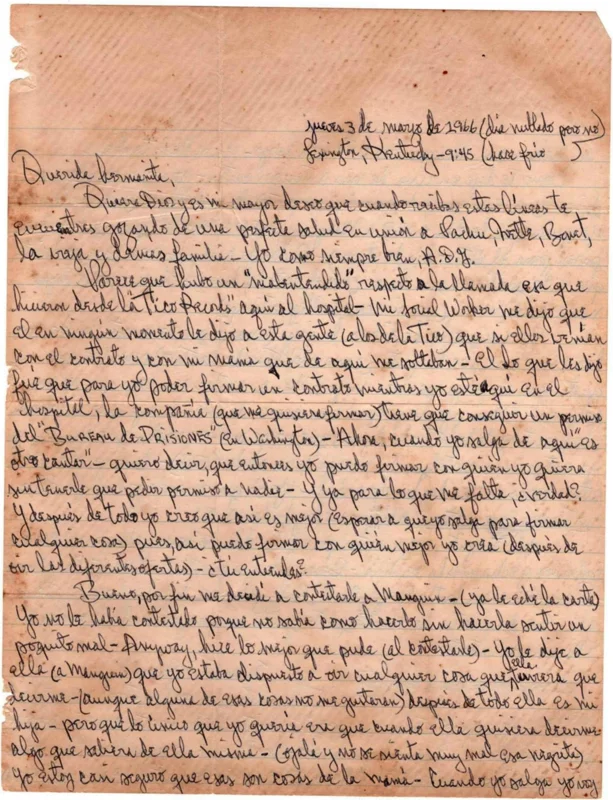 jueves 3 de marzo de 1966 (día nublado pero no)
Lexington, Kentucky - 9:45 (hace frio
Querida hermanita,
Quiera Dios y es mi mayor deseo que cuando recibas estas líneas te
encuentres gozando de una perfecta salud en unión a Pachu, Ivette, Bonet,
la vieja y demas familia - Yo como siempre bien, A.D.G.
Parece que hubo un "malentendido" respecto a la llamada esa que
hicieron desde la "Tico Records" aquí al hospital - Mi Social Worker me dijo que
el en ningun momento le dijo a esta gente (a los de la Tico) que si ellos venían
con el contrato y con mi mamá que de aquí me soltaban - El lo que les dijo
fué que para yo poder firmar un contrato mientras yo este aquí en el
hospital, la compañia (que me quisiera firmar) tiene que conseguir un permiso
del "BUREAU de PRISIONES" (en Washington) - Ahora, cuando yo salga de aquí "es
otro cantar" - quiero decir, que entonces yo puedo firmar con quien yo quiera
sin tenerle que pedir permiso a nadie - Y ya para lo que me falta, ¿verdad?
Y después de todo yo creo que asi es mejor (esperar a que yo salga para firmar
cualquier cosa) pues, así puedo firmar con quién mejor yo crea (después de
oir las diferentes ofertas) - ¿tu entiendes?
Bueno, por fin me decidí a contestarle a Manguin - (ya le eché la carta)
Yo no le había contestado porque no sabía como hacerlo sin hacerla sentir un
poquito mal - Anyway, hice lo mejor que pude (al contestarle) - Yo le dije a
ella (a Manguin) que yo estaba dispuesto a oir cualquier cosa que ella quisiera que
decirme - (aunque alguna de esas cosas no me gustaran) después de todo ella es mi
hija - pero que lo único que yo quería era que cuando ella quisiera decirme
algo que saliera de ella misma - (ojalá y no se sienta muy mal esa negrita)
Yo estoy casi seguro que esas son cosas de la mamá - Cuando yo salga yo voy